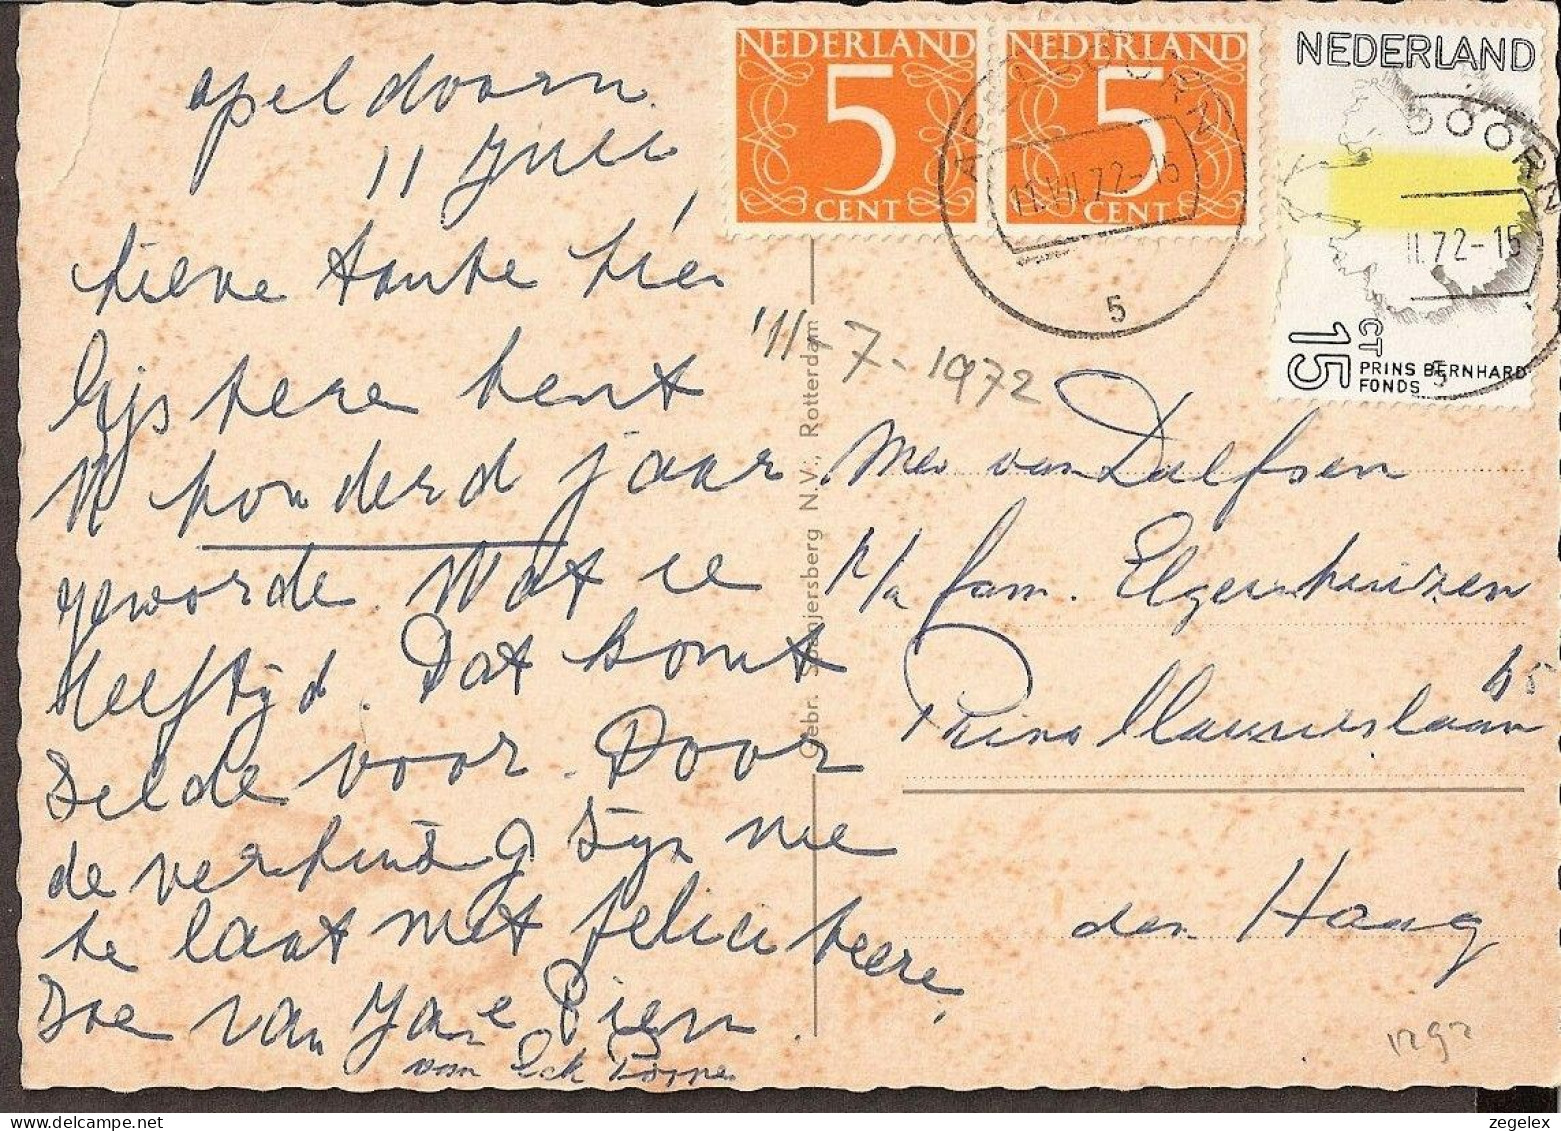 apeldoorn
11 Juli
Lieve tante Riet
Gijstere bent
U honderd jaar
geworde. Wat ie
Leeftijd. Dat komt
Selde voor. Door
de verhuising zijn we
te laat met feliciteere,
Doe van Jane Pien.
van Eck
NEDERLAND
5
CENT
NEDERLAND
5
CENT
APELDOORN
11.VII.72-15
5
NEDERLAND
15 CT
PRINS BERNHARD
FONDS
DOORN
II.72-15
5
11-7-1972
Gebr. Spanjersberg N.V., Rotterdam
Mev van Dalfsen
p/a fam. Elzenhuizen
Prins Mauritslaan 45
den Haag
1292
zegelex